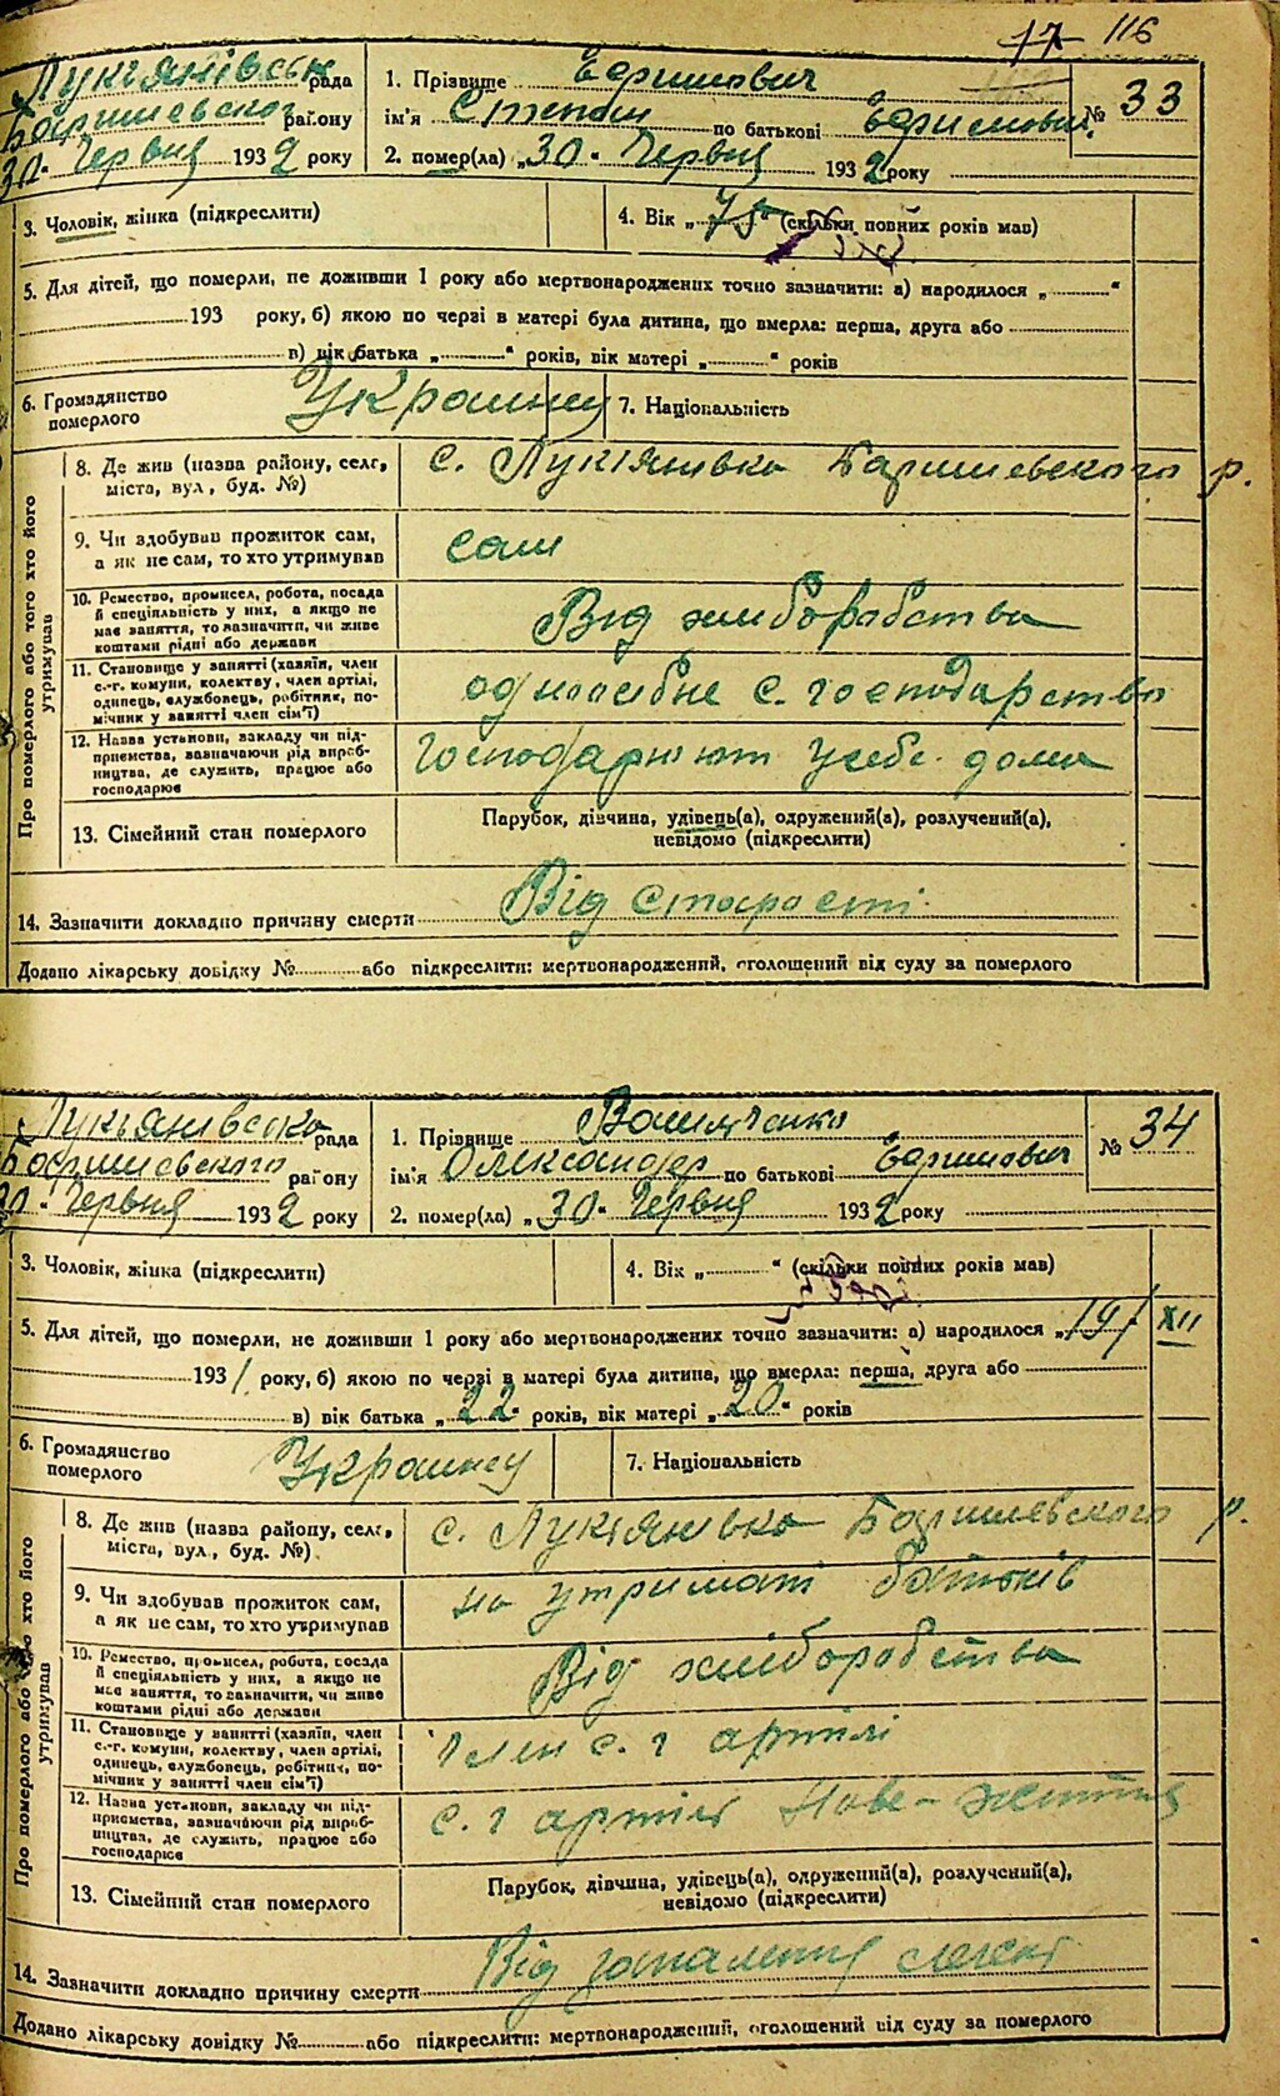 17 116
Лукянівськ рада
Баришевского району
30 " Червня 1932 року
1. Прізвище
ім'я Степан по батькові
2. помер(ла) „30 " Червня 1932 року
№ 33
3. Чоловік, жінка (підкреслити)
4. Вік „ 75 " (скільки повних років мав)
5. Для дітей, що померли, не доживши 1 року або мертвонароджених точно зазначити: а) народилося „ "
193 року, б) якою по черзі в матері була дитина, що вмерла: перша, друга або
в) вік батька „ " років, вік матері „ " років
6. Громадянство
померлого
Украину
7. Національність
Про померлого або того хто його
утримував
8. Де жив (назва району, селс,
міста, вул, буд. №)
с. Лукянивка Баришевского р.
9. Чи здобував прожиток сам,
а як не сам, то хто утримував
сам
10. Ремество, промисел, робота, посада
й спеціяльність у них, а якщо не
має заняття, то зазначити, чи живе
коштами рідні або держави
Від хлиборобства
11. Становище у занятті (хазяїн, член
с.-г. комуни, колективу, член артілі,
одинець, службовець, робітник, по-
мічник у занятті член сім'ї)
одноосібне с. господарство
12. Назва установи, закладу чи під-
приємства, зазначаючи рід вироб-
ництва, де служить, працює або
господарює
у себе дома
13. Сімейний стан померлого
Парубок, дівчина, удівець(а), одружений(а), розлучений(а),
невідомо (підкреслити)
14. Зазначити докладно причину смерти Від старости
Додано лікарську довідку № або підкреслити: мертвонароджений, оголошений від суду за померлого
Лукьянівска рада
Баришевского району
30 " Червня 1932 року
1. Прізвище
ім'я Олександер по батькові
2. помер(ла) „30 " Червня 1932 року
№ 34
3. Чоловік, жінка (підкреслити)
4. Вік „ " (скільки повних років мав)
5. Для дітей, що померли, не доживши 1 року або мертвонароджених точно зазначити: а) народилося „19/ XII
1931 року, б) якою по черзі в матері була дитина, що вмерла: перша, друга або
в) вік батька „ 22 " років, вік матері „ 20 " років
6. Громадянство
померлого
Украину
7. Національність
Про померлого або того хто його
утримував
8. Де жив (назва району, селс,
міста, вул., буд. №)
с. Лукянивка Баришевского р.
9. Чи здобував прожиток сам,
а як не сам, то хто утримував
на утримані батьків
10. Ремество, промисел, робота, посада
й спеціяльність у них, а якщо не
має заняття, то зазначити, чи живе
коштами рідні або держави
Від хліборобства
11. Становище у занятті (хазяїн, член
с.-г. комуни, колективу, член артілі,
одинець, службовець, робітник, по-
мічник у занятті член сім'ї)
член с. г артілі
12. Назва установи, закладу чи під-
приємства, зазначаючи рід вироб-
ництва, де служить, працює або
господарює
с. г артіль Нове-життя
13. Сімейний стан померлого
Парубок, дівчина, удівець(а), одружений(а), розлучений(а),
невідомо (підкреслити)
14. Зазначити докладно причину смерти Від запалення легені
Додано лікарську довідку № або підкреслити: мертвонароджений, оголошений від суду за померлого